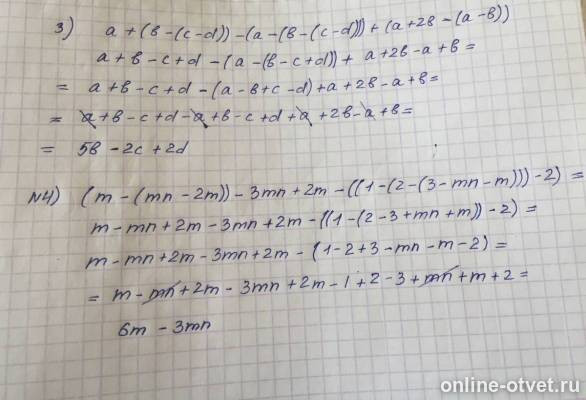 3) a + (в - (c - d)) - (a - (в - (c - d))) + (a + 2в - (a - в))
a + в - c + d - (a - (в - c + d)) + a + 2в - a + в =
= a + в - c + d - (a - в + c - d) + a + 2в - a + в =
= a + в - c + d - a + в - c + d + a + 2в - a + в =
= 5в - 2c + 2d
N4) (m - (mn - 2m)) - 3mn + 2m - ((1 - (2 - (3 - mn - m))) - 2) =
m - mn + 2m - 3mn + 2m - ((1 - (2 - 3 + mn + m)) - 2) =
m - mn + 2m - 3mn + 2m - (1 - 2 + 3 - mn - m - 2) =
= m - mn + 2m - 3mn + 2m - 1 + 2 - 3 + mn + m + 2 =
6m - 3mn
online-otvet.ru